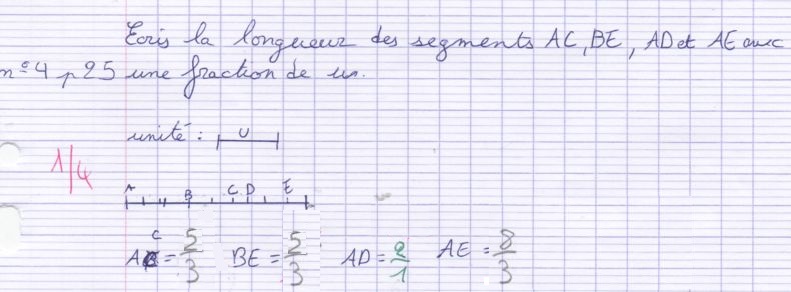 Ecris la longueur des segments AC, BE, AD et AE avec
n° 4 p 25 une fraction de u.
unité : U
1/4
A B C D E
AC = 5/3 BE = 5/3 AD = 2/1 AE = 8/3